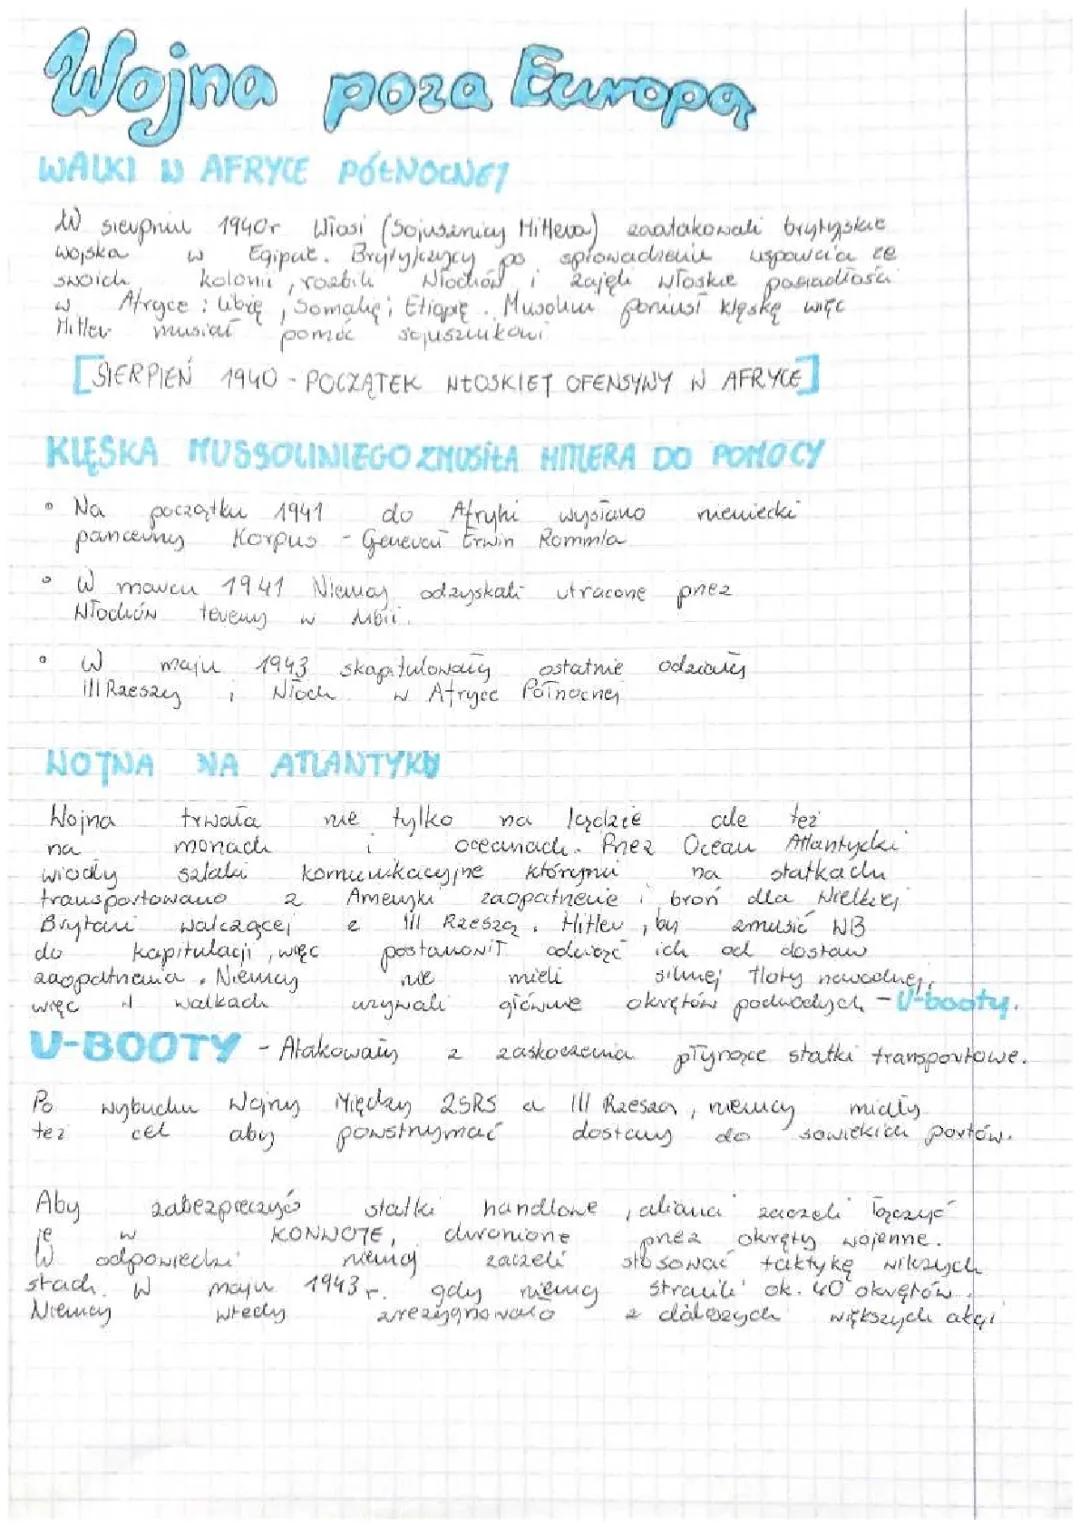 Wojna poza Europą
WALKI W AFRYCE PÓŁNOCNEJ
W sierpniu 1940r Włosi (Sojusznicy Hitlera) zaatakowali brytyjskie
wojska w Egipcie. Brytyjczycy po sprowadzeniu wsparcia ze
swoich kolonii, rozbili Włochów i zajęli włoskie posiadłości
w Afryce: Libię, Somalię i Etiopię. Musolini poniósł klęskę więc
Hitler musiał pomóc sojusznikowi
[SIERPIEŃ 1940 - POCZĄTEK WŁOSKIEJ OFENSYWY W AFRYCE]
KLĘSKA MUSSOLINIEGO ZMUSIŁA HITLERA DO POMOCY
• Na początku 1941 do Afryki wysłano niemiecki
pancerny Korpus - Generał Erwin Rommla
• W marcu 1941 Niemcy odzyskali utracone przez
Włochów tereny w Libii.
• W maju 1943 skapitulowały ostatnie odziały
III Rzeszy i Włoch w Afryce Północnej
WOJNA NA ATLANTYKU
Wojna trwała nie tylko na lądzie ale też
na morzach i oceanach. Przez Ocean Atlantycki
wiodły szlaki komunikacyjne którymi na statkach
transportowano z Ameryki zaopatrzenie i broń dla Wielkiej
Brytani walczącej z III Rzeszą. Hitler, by zmusić WB
do kapitulacji, więc postanowił odciąć ich od dostaw
zaopatrzenia. Niemcy nie mieli silnej floty nawodnej,
więc w walkach używali głównie okrętów podwodych - U-booty.
U-BOOTY - Atakowały z zaskoczenia płynące statki transportowe.
Po wybuchu Wojny Między ZSRS a III Rzeszą, niemcy miały
też cel aby powstrzymać dostawy do sowieckich portów.
Aby zabezpieczyć statki handlowe, alianci zaczeli łączyć
je w KONWOJE, chronione przez okręty wojenne.
W odpowiedzi niemcy zaczeli stosować taktykę wilczych
stad. W maju 1943r. gdy niemcy stracili ok. 40 okrętów.
Niemcy wtedy zrezygnowano z dalszych większych akcji